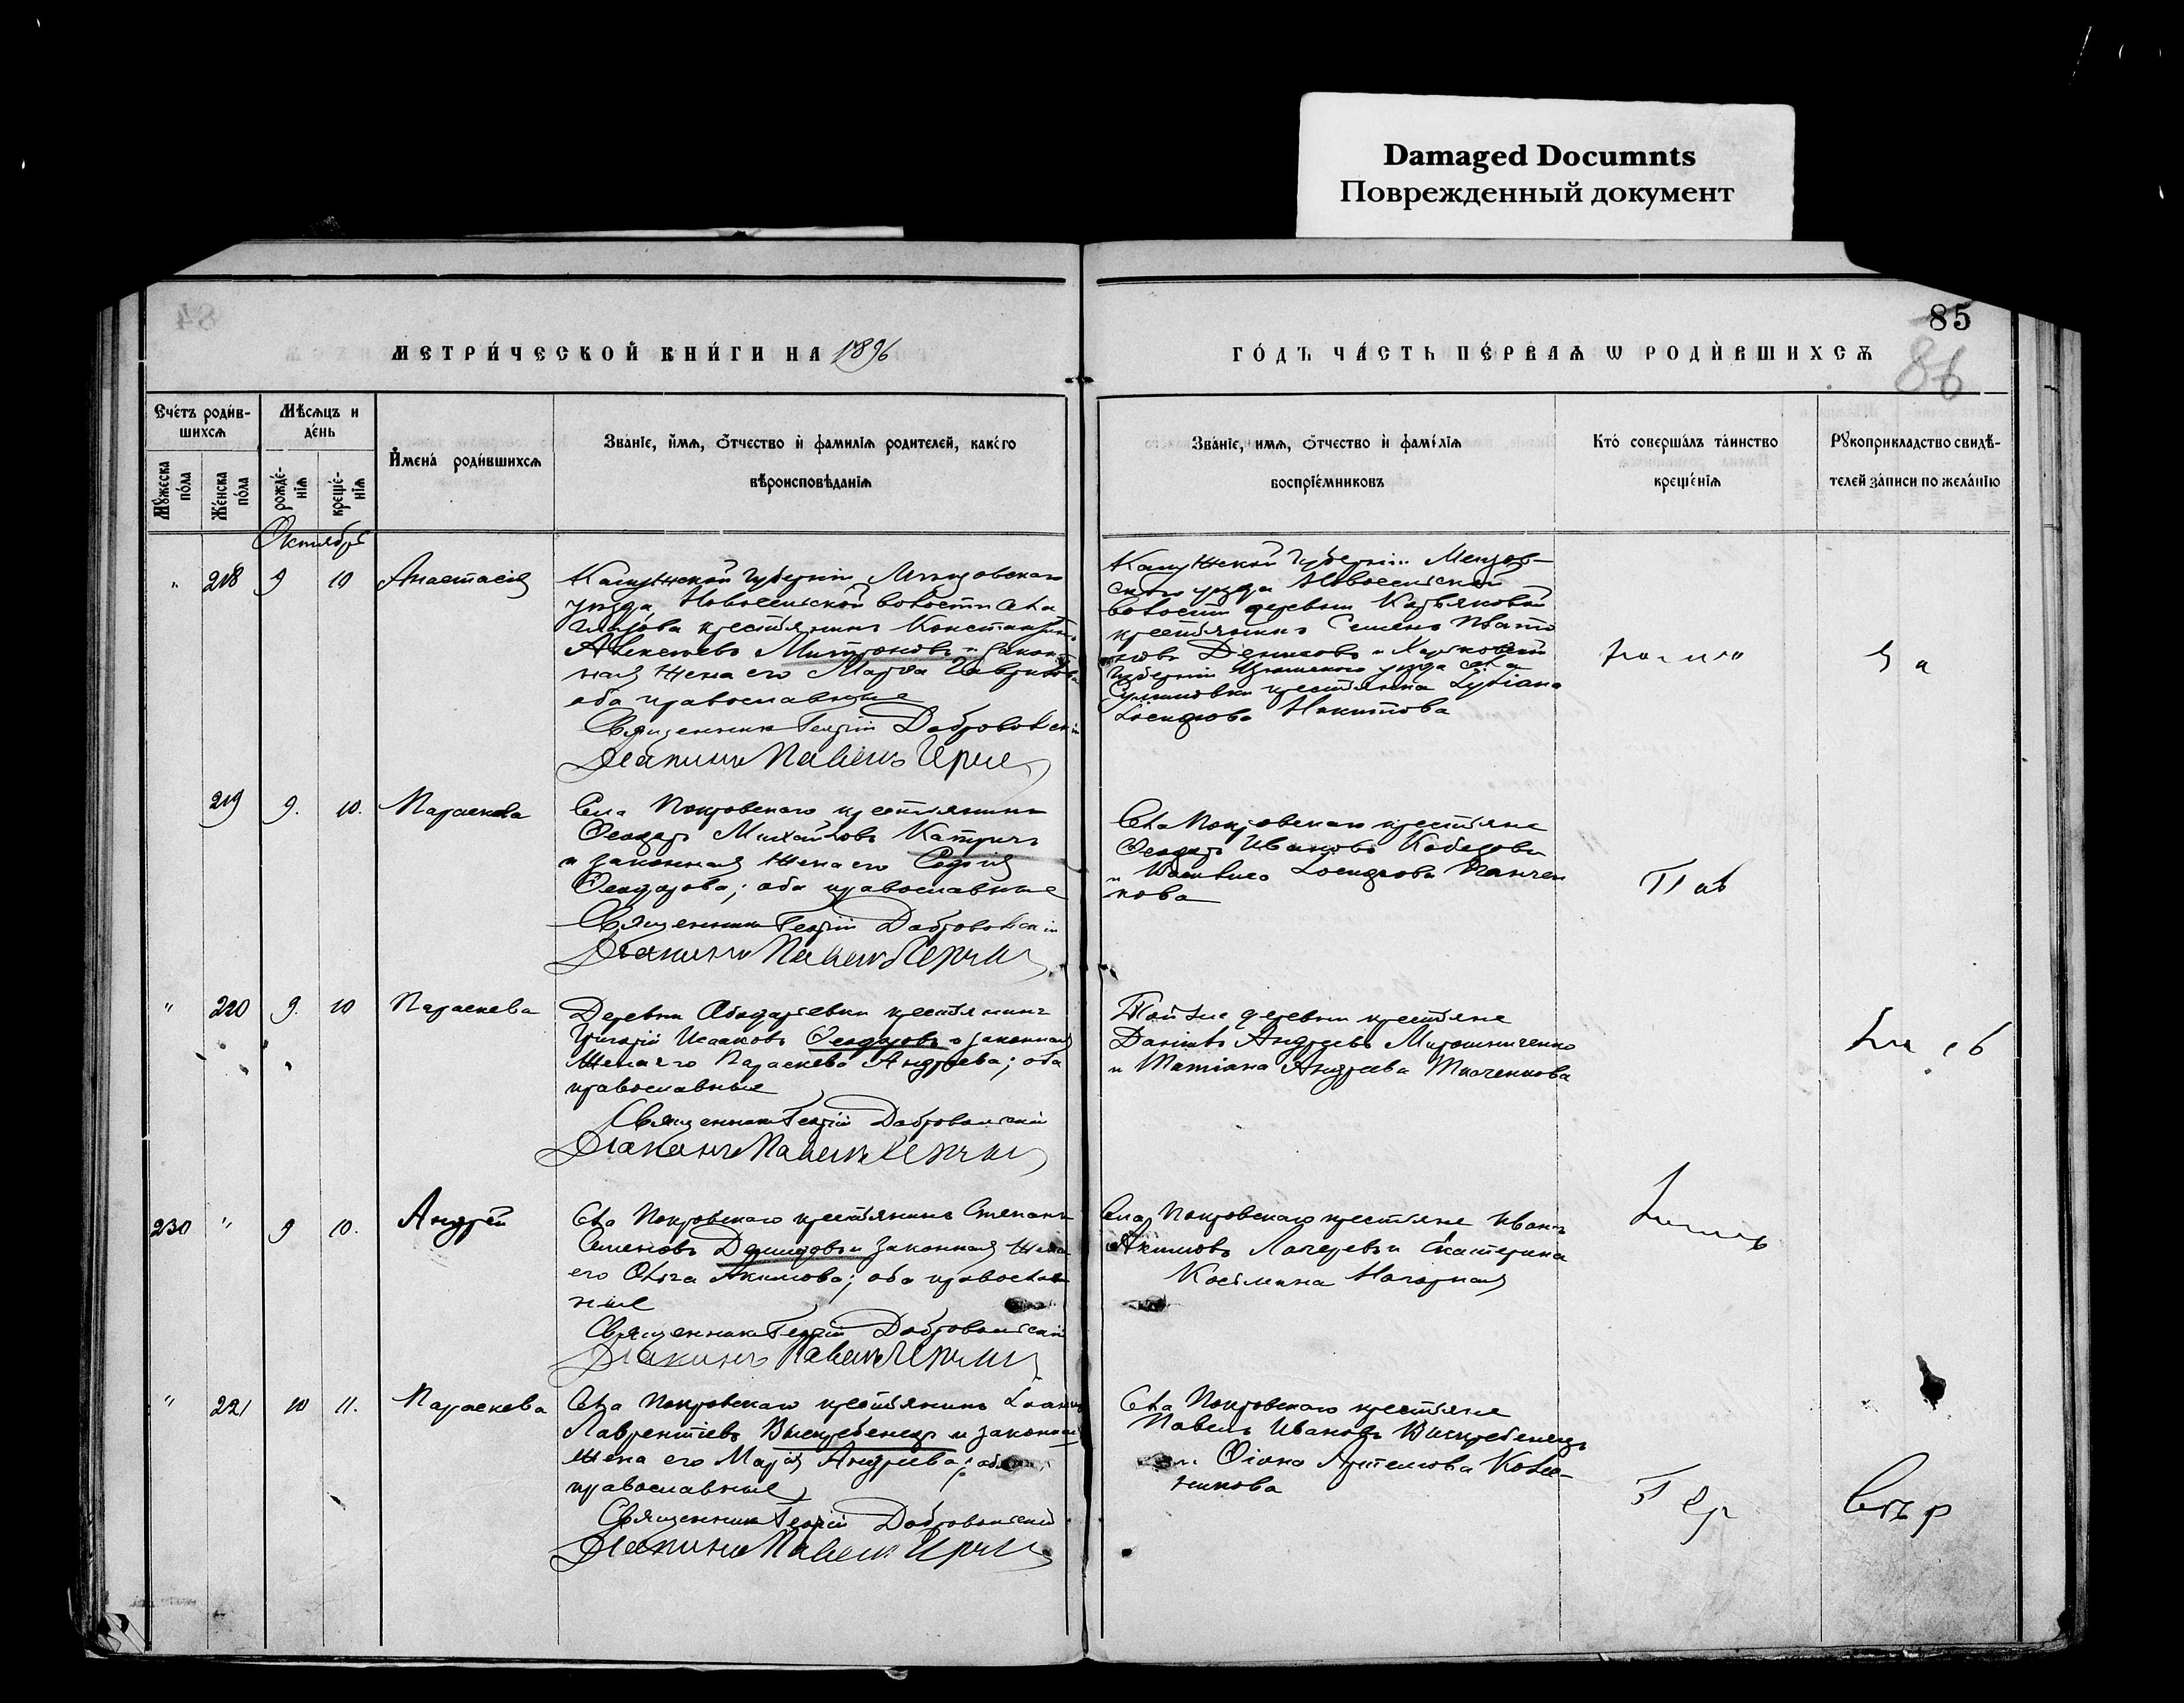 Damaged Documnts
Поврежденный документ
85
86
МЕТРИ́ЧЕСКОЙ КНИ́ГИ НА 1896
ГО́ДЪ ЧА́СТЬ ПЕ́РВАѦ Ѡ РОДИ́ВШИХСѦ
Счётъ роди́в-
шихсѧ
Мѣ́сѧцъ и
де́нь
Мꙋжеска
по́ла
Же́нска
по́ла
рожде́-
нїѧ
креще́-
нїѧ
И҆мена̀ роди́вшихсѧ
Зва́нїе, и҆́мѧ, ѻ҆́тчество и҆ фами́лїѧ роди́телей, како́гѡ
вѣроисповѣ́данїѧ
Зва́нїе, и҆́мѧ, ѻ҆́тчество и҆ фами́лїѧ
воспрїе́мниковъ
Кто̀ соверша́лъ та́инство
креще́нїѧ
Рꙋкоприкла́дство свидѣ́-
телей за́писи по жела́нїю
Октябрь
" 218 9 10 Анастасія
Калужской губерніи
уѣзда, Новосельской волости села
крестьянинъ Константинъ
Алексѣевъ Митроновъ и закон-
ная жена его Марѳа Гаврилова
оба православные
Священникъ Георгій Добровольскій
Діаконъ Павелъ
Калужской губерніи
скаго уѣзда Новосельской
волости деревни
крестьянинъ Семенъ
Денисовъ и Харьковской
губерніи Изюмскаго уѣзда села
крестьянка
Никитова
219 9. 10. Параскева
Села Покровскаго крестьянинъ
Ѳеодоръ Михайловъ Катричъ
и законная жена его Софія
Ѳеодорова; оба православные
Священникъ Георгій Добровольскій
Діаконъ Павелъ
Села Покровскаго крестьяне
Ѳеодоръ Ивановъ
и Іосифова Панчен
кова
" 220 9. 10 Параскева
Деревни крестьянинъ
Григорій Исааковъ Ѳеодоровъ и законная
жена его Параскева Андреева; оба
православные
Священникъ Георгій Добровольскій
Діаконъ Павелъ
Той же деревни крестьяне
Даніилъ Андреевъ Мирошниченко
и Татіана Андреева Ткаченкова
230 " 9 10. Андрей
Села Покровскаго крестьянинъ Степанъ
Семеновъ Демидовъ и законная жена
его Ольга Акимова; оба православ
ные
Священникъ Георгій Добровольскій
Діаконъ Павелъ
Села Покровскаго крестьяне Иванъ
Акимовъ и Екатерина
Косьмина Нагорная
" 221 10 11. Параскева
Села Покровскаго крестьянинъ Іоаннъ
Лаврентіевъ Выскребенецъ и законная
жена его Марія Андреева; оба
православные
Священникъ Георгій Добровольскій
Діаконъ Павелъ
Села Покровскаго крестьяне
Павелъ Ивановъ Выскребенецъ
и Артемова Колес-
никова